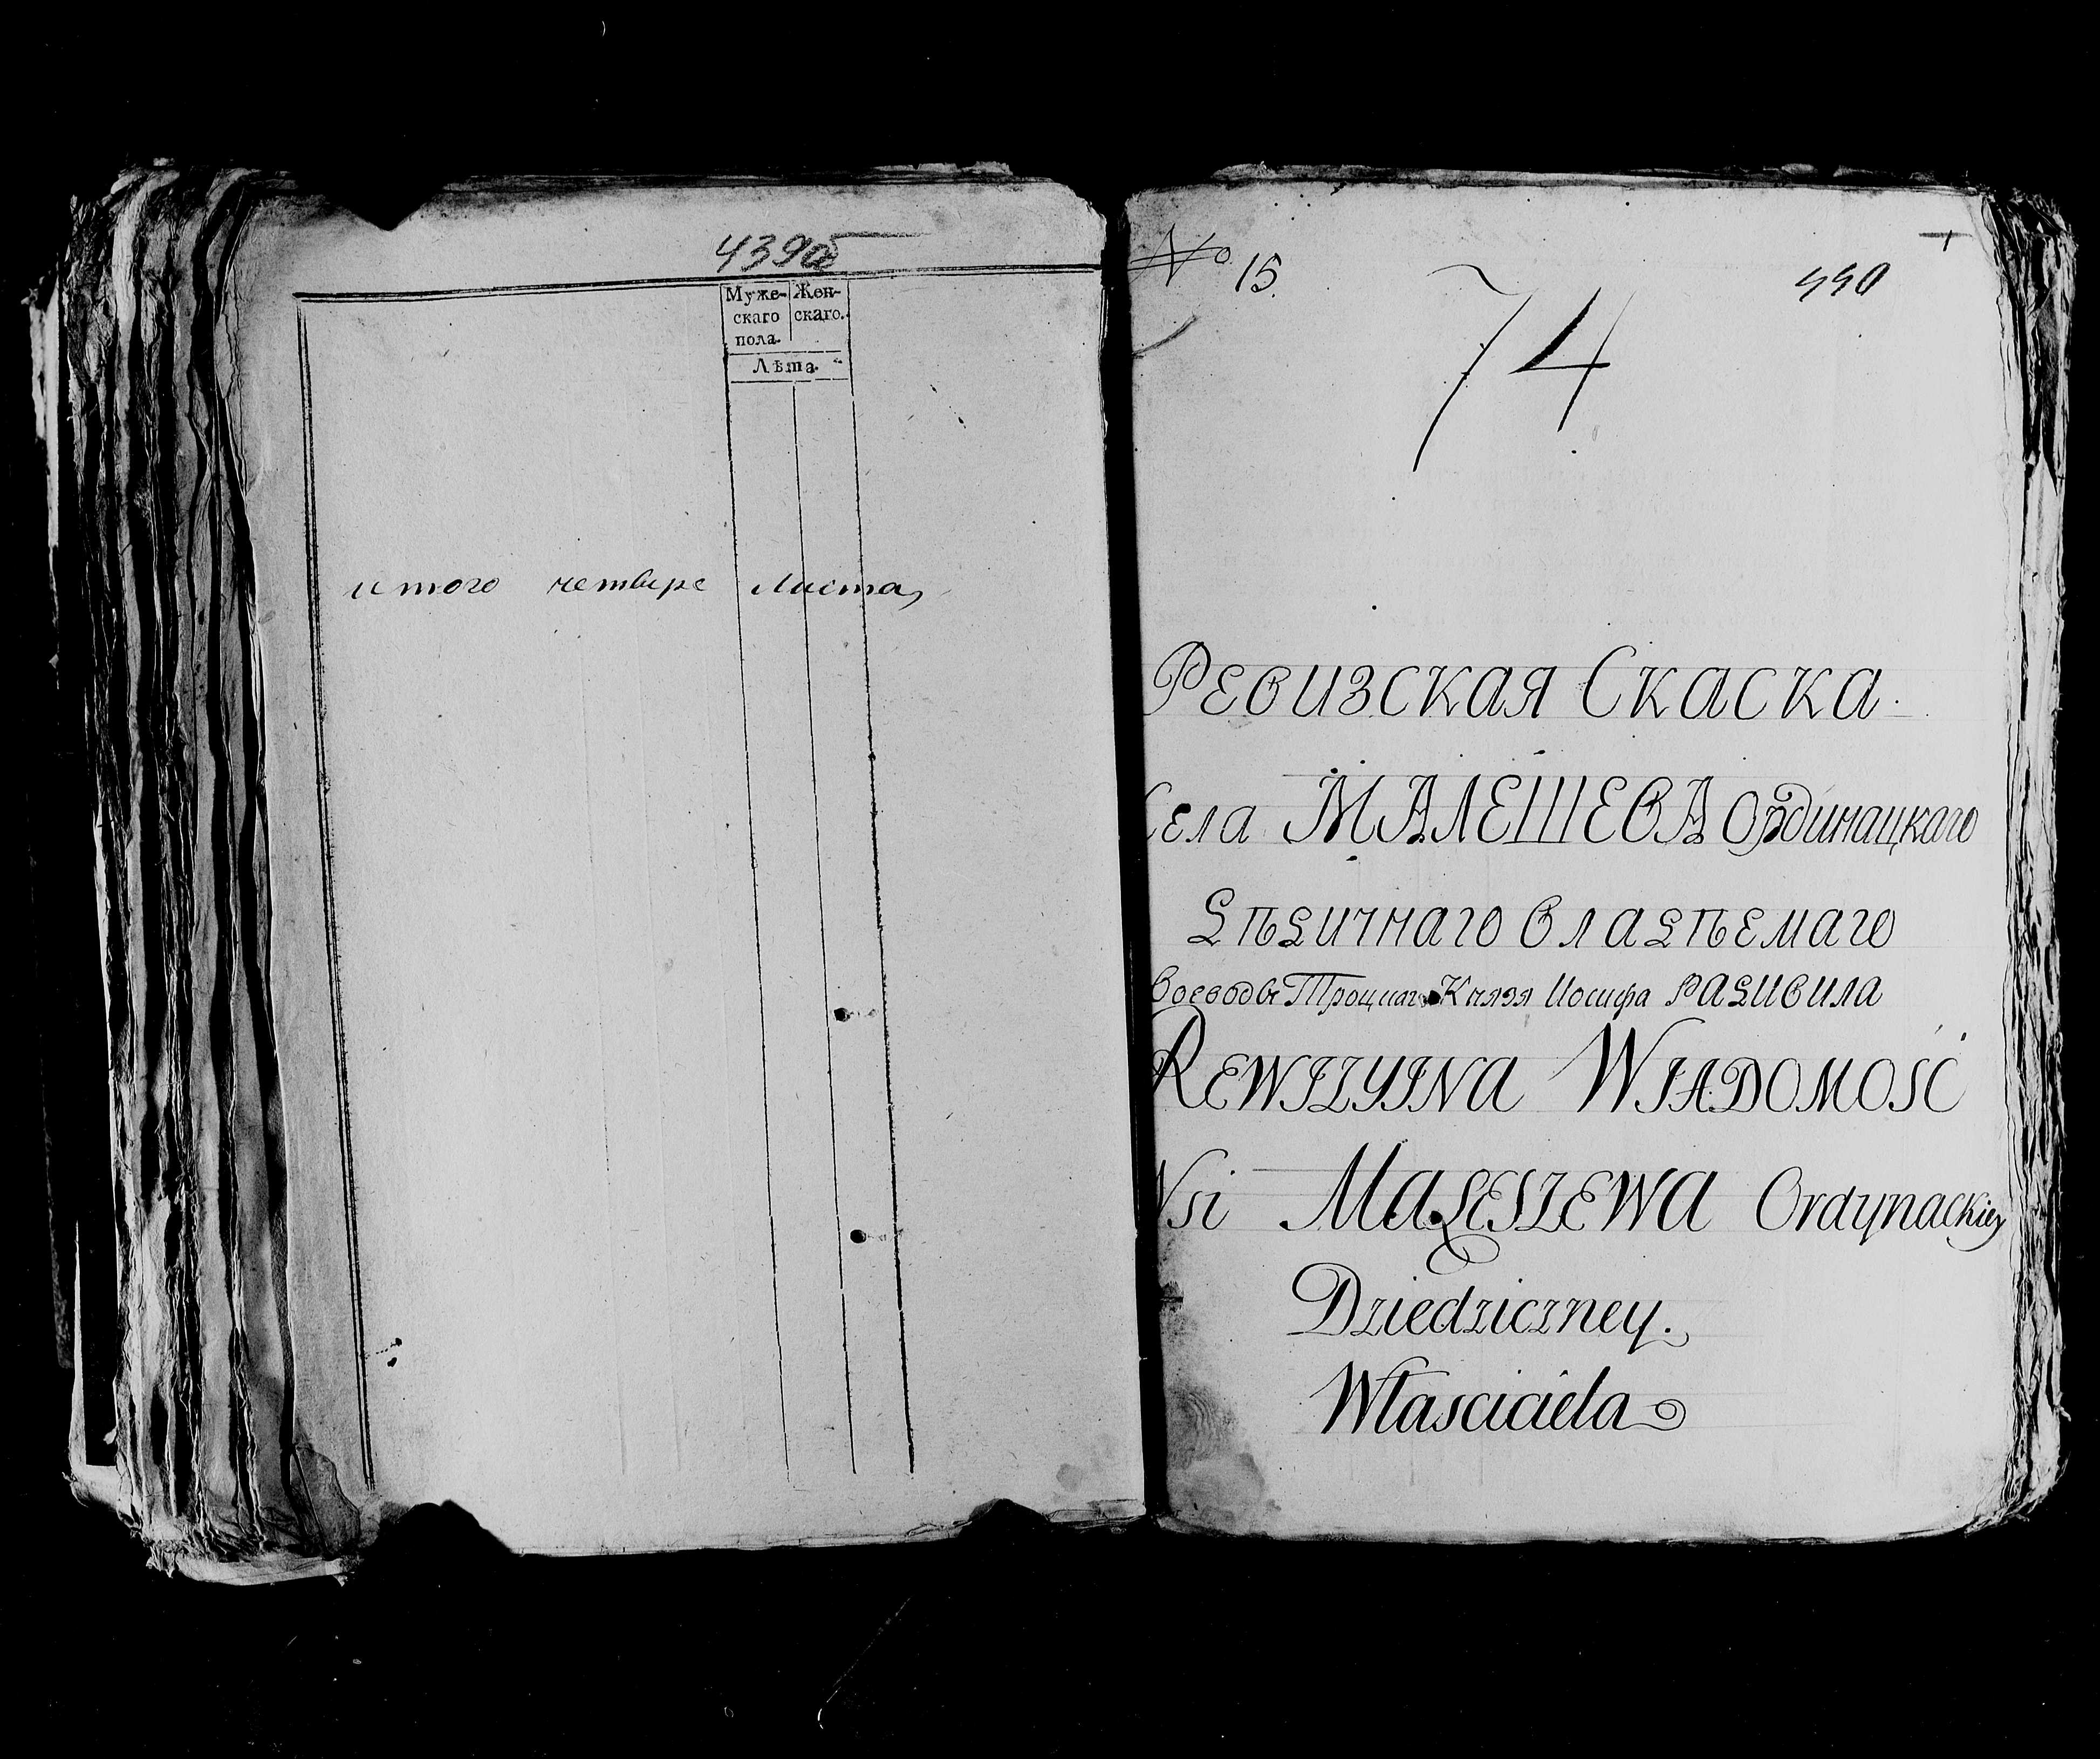 439об
Муже- Жен-
скаго скаго.
пола.
Лѣта.
итого четыре листа,
№ 15.
440
74
Ревизская Скаска.
Села МАЛЕШЕВА Ординацкаго
Дѣдичнаго владѣемаго
Воеводы Троцкаго Князя Иосифа РАДИВИЛА
REWIZYINA WIADOMOSĆ
Wsi MALESZEWA Ordynackiey
Dziedziczney.
Własciciela